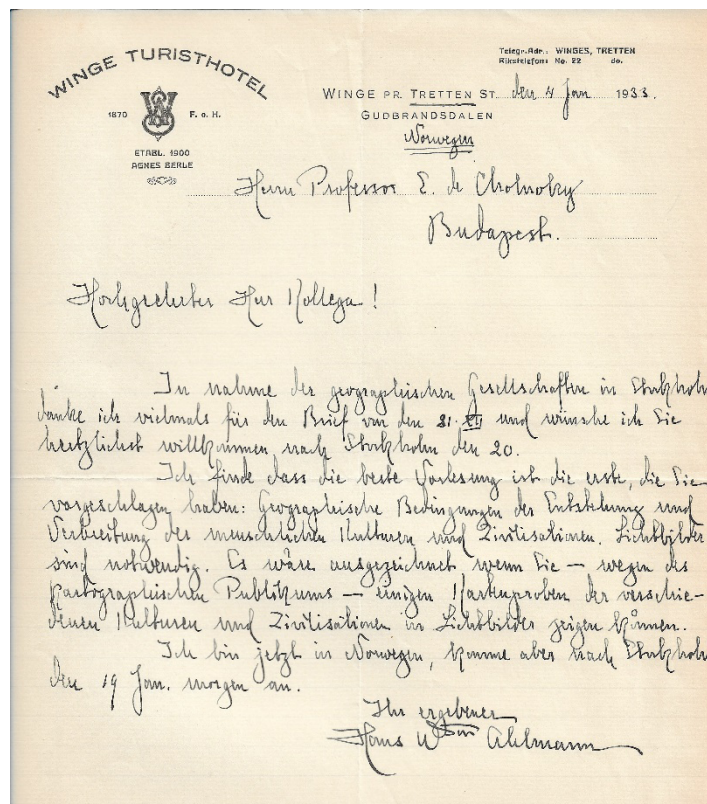 WINGE TURISTHOTEL
1870 F. o. H.
ETABL. 1900
AGNES BERLE
Telegr.Adr.: WINGES, TRETTEN
Rikstelefon: No. 22 do.
WINGE PR. TRETTEN ST. den 4 Jan 1933.
GUDBRANDSDALEN
Norwegen
Herrn Professor E. de Cholnoky
Budapest.
Hochgeehrter Herr Kollega!
In nahme der geographischen Gesellschaften in Stockholm
danke ich vielmals für den Brief von den 21. XII und wünsche ich Sie
hertzlichst willkommen nach Stockholm den 20.
Ich finde dass die beste Vorlesung ist die erste, die Sie
vorgeschlagen haben: Geographische Bedingungen der Entstehung und
Verbreitung der menschlichen Kulturen und Zivilisationen. Lichtbilder
sind notwendig. Es wäre ausgezeichnet wenn Sie — wegen des
kartographischen Publikums — einigen Kartenproben der verschie-
denen Kulturen und Zivilisationen in Lichtbilder zeigen können.
Ich bin jetzt in Norwegen, komme aber nach Stockholm
den 19 Jan. morgen an.
Ihr ergebener
Hans W:son Ahlmann